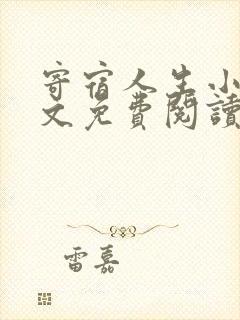 寄宿人生小
文免費閱讀
雷嘉